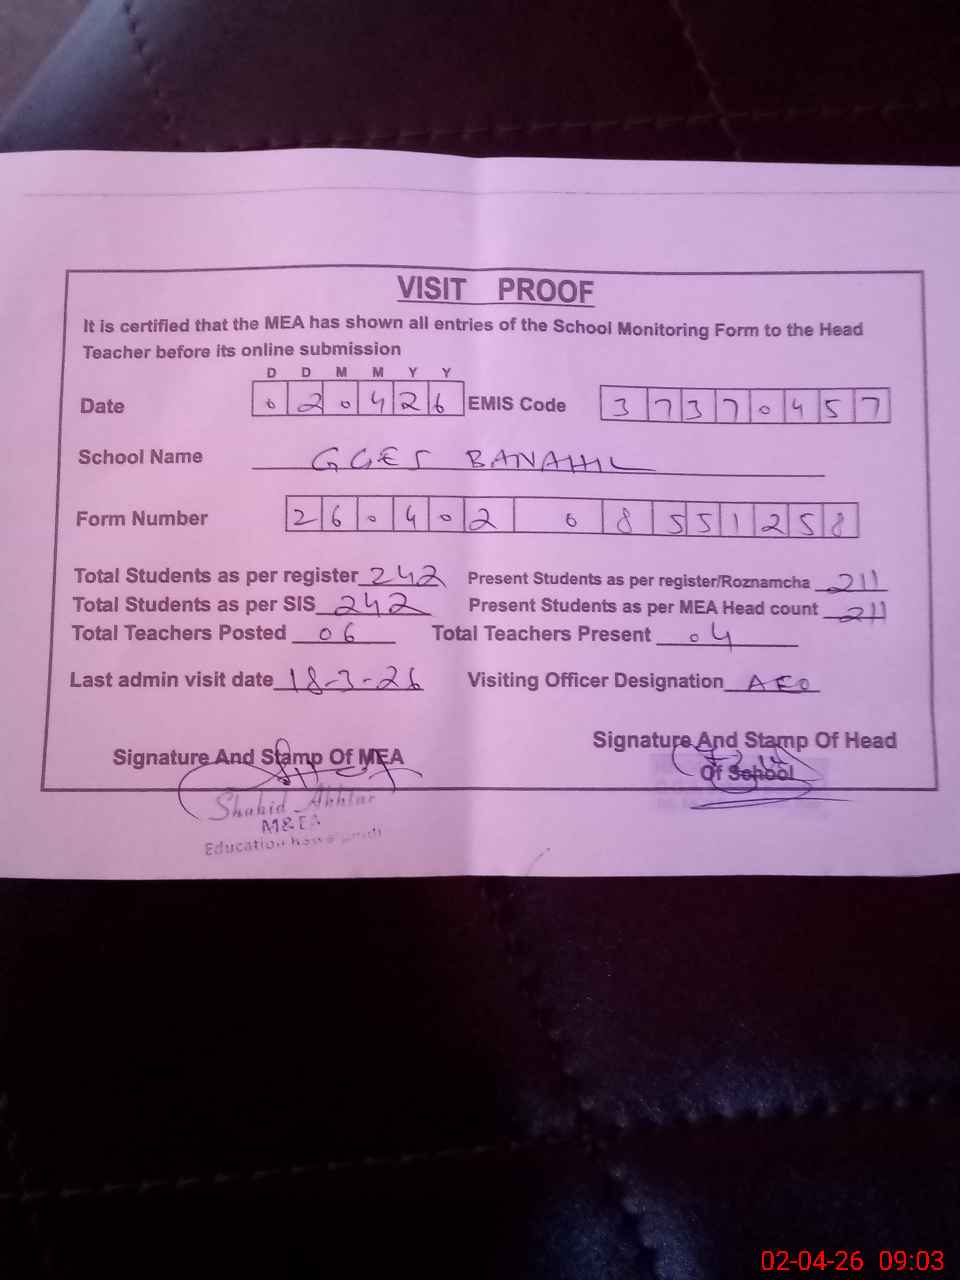 VISIT PROOF
It is certified that the MEA has shown all entries of the School Monitoring Form to the Head
Teacher before its online submission
D D M M Y Y
Date 0 2 0 4 2 6 EMIS Code 3 7 3 7 0 4 5 7
School Name GGES BANAHIL
Form Number 2 6 0 4 0 2 0 8 5 5 1 2 5 8
Total Students as per register 242 Present Students as per register/Roznamcha 211
Total Students as per SIS 242 Present Students as per MEA Head count 211
Total Teachers Posted 06 Total Teachers Present 04
Last admin visit date 18-3-26 Visiting Officer Designation AEO
Signature And Stamp Of MEA
Signature And Stamp Of Head
Of School
Shahid Akhtar
M&EA
Education
02-04-26 09:03